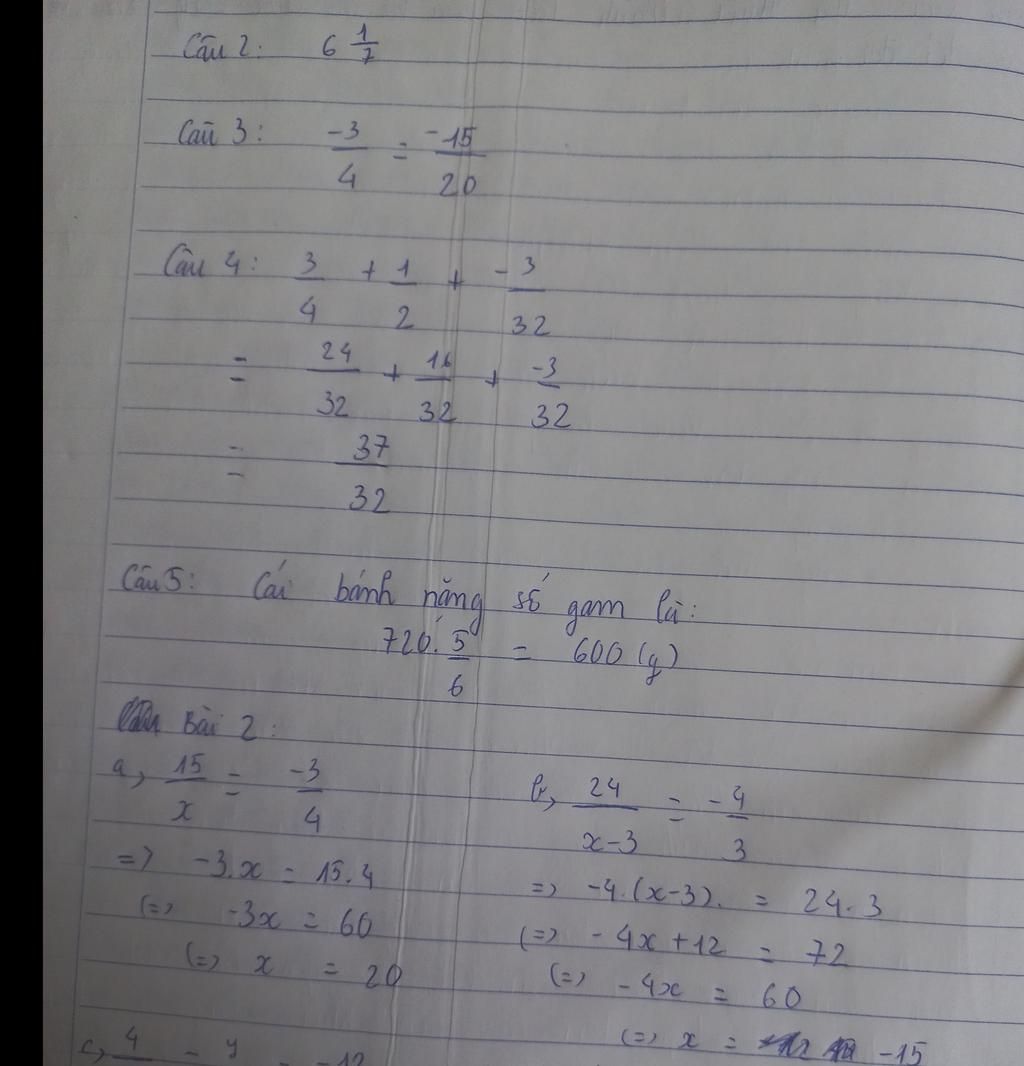 Câu 2: 6 1/7
Câu 3: -3/4 = -15/20
Câu 4: 3/4 + 1/2 + -3/32
= 24/32 + 16/32 + -3/32
= 37/32
Câu 5: Cái bánh nặng số gam là:
720. 5/6 = 600 (g)
Bài 2:
a, 15/x = -3/4
=> -3.x = 15.4
(=) -3x = 60
(=) x = 20
b, 24/x-3 = -4/3
=> -4.(x-3). = 24.3
(=) -4x+12 = 72
(=) -4x = 60
(=) x = -15
c, 4 = y = -12